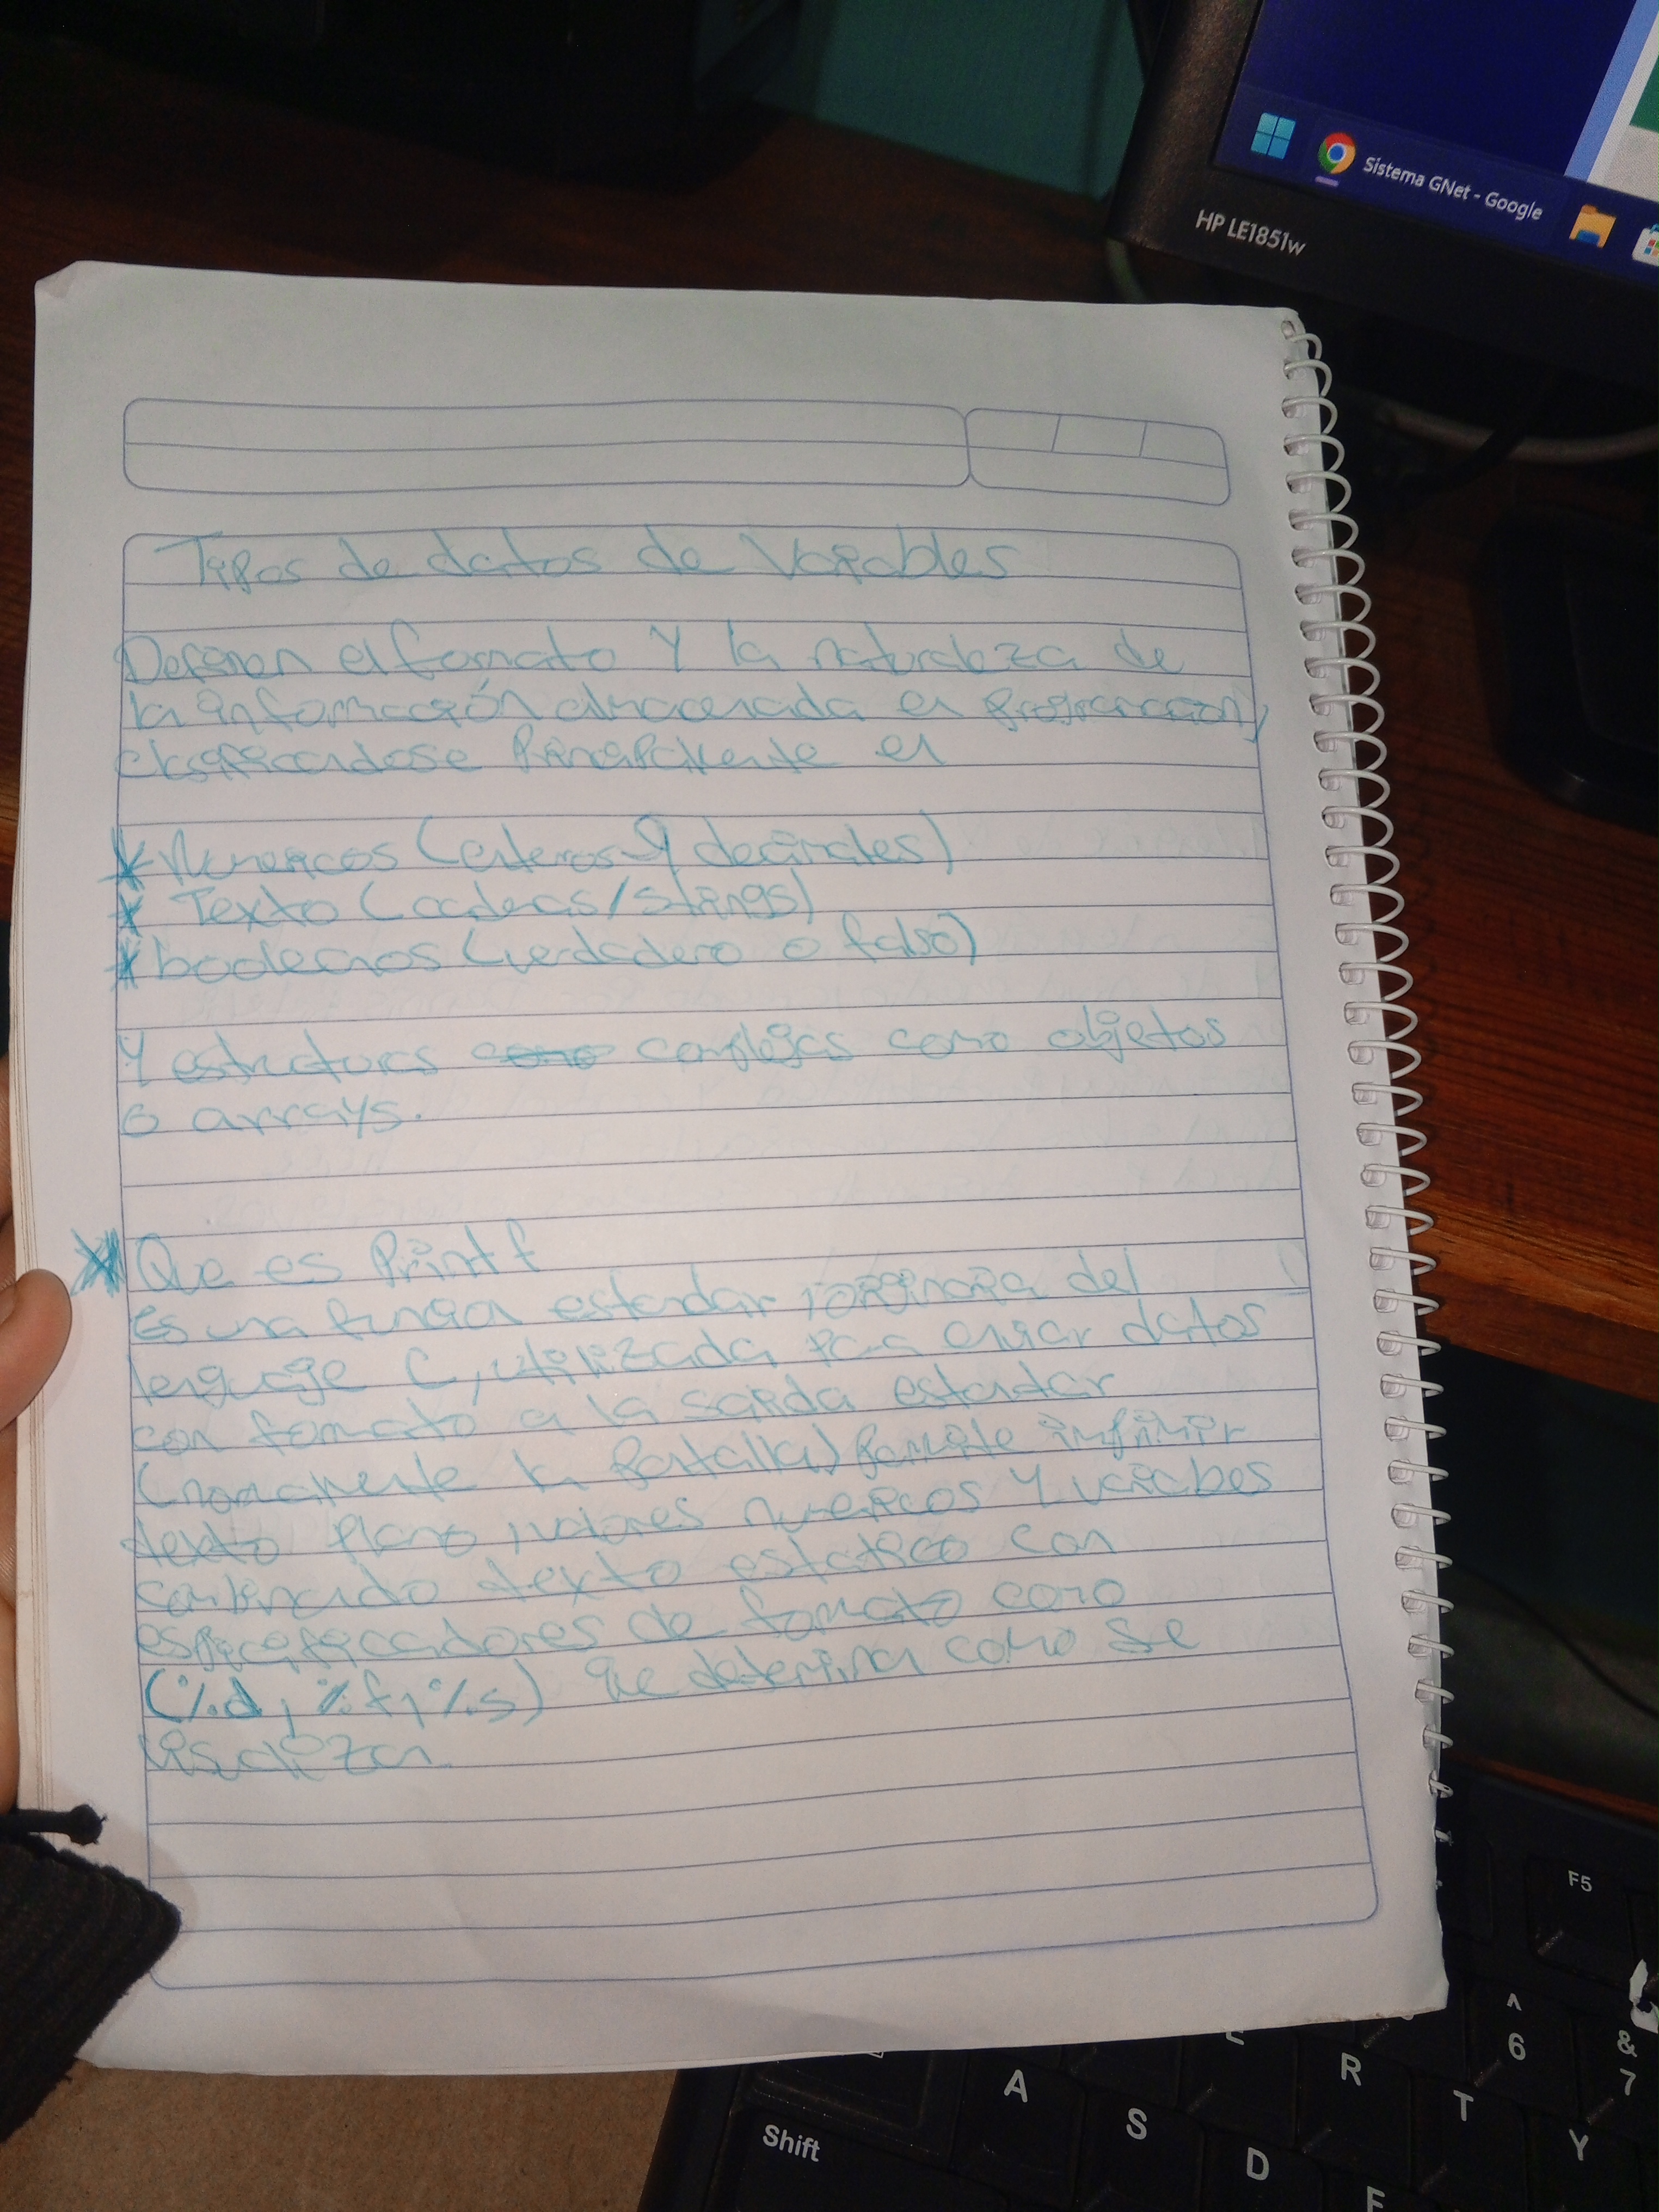 Sistema GNet - Google
HP LE1851w
Tipos de datos de Variables
Definen el formato y la naturaleza de
la información almacenada en programación,
clasificandose principalmente en
* Numericos (enteros y decimales)
* Texto (cadenas/strings)
* booleanos (verdadero o falso)
Y estructuras como complejas como objetos
o arrays.
* Que es Printf
Es una funcion estandar, originaria del
lenguaje C, utilizada para enviar datos
con formato a la salida estandar
(normalmente la pantalla) permite imprimir
texto plano, valores numericos y variables
combinando texto estatico con
especificadores de formato como
(%d, %f, %s) que determina como se
visualizan.
F5
^
6
&
7
E
R
T
Y
A
S
D
F
Shift